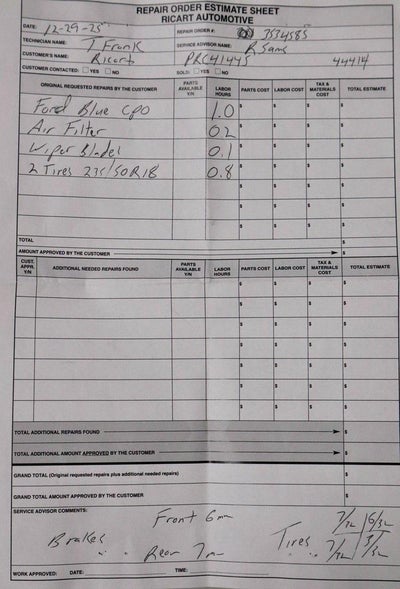 REPAIR ORDER ESTIMATE SHEET
RICART AUTOMOTIVE
DATE: 12-29-25 REPAIR ORDER #: 3534585
TECHNICIAN NAME: T Frank SERVICE ADVISOR NAME: R Sams
CUSTOMER'S NAME: Ricart PRC41445 44414
CUSTOMER CONTACTED: YES NO SOLD: YES NO
ORIGINAL REQUESTED REPAIRS BY THE CUSTOMER PARTS AVAILABLE Y/N LABOR HOURS PARTS COST LABOR COST TAX & MATERIALS COST TOTAL ESTIMATE
Ford Blue CPO 1.0 $ $ $ $
Air Filter 02 $ $ $ $
Wiper Blades 0.1 $ $ $ $
2 Tires 235/50R18 0.8 $ $ $ $
$ $ $ $
$ $ $ $
$ $ $ $
TOTAL $
AMOUNT APPROVED BY THE CUSTOMER $
CUST. APPR. Y/N ADDITIONAL NEEDED REPAIRS FOUND PARTS AVAILABLE Y/N LABOR HOURS PARTS COST LABOR COST TAX & MATERIALS COST TOTAL ESTIMATE
$ $ $ $
$ $ $ $
$ $ $ $
$ $ $ $
$ $ $ $
$ $ $ $
$ $ $ $
TOTAL ADDITIONAL REPAIRS FOUND $
TOTAL ADDITIONAL AMOUNT APPROVED BY THE CUSTOMER $
GRAND TOTAL (Original requested repairs plus additional needed repairs) $
GRAND TOTAL AMOUNT APPROVED BY THE CUSTOMER $
SERVICE ADVISOR COMMENTS:
Front 6mm 7/32 6/32
Brakes Tires
" " Rear 7mm " " 7/32 3/32
WORK APPROVED: DATE: TIME: